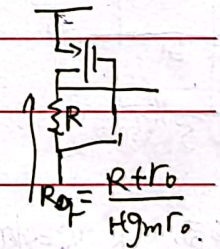 R
Req = R+ro
Hgmro.